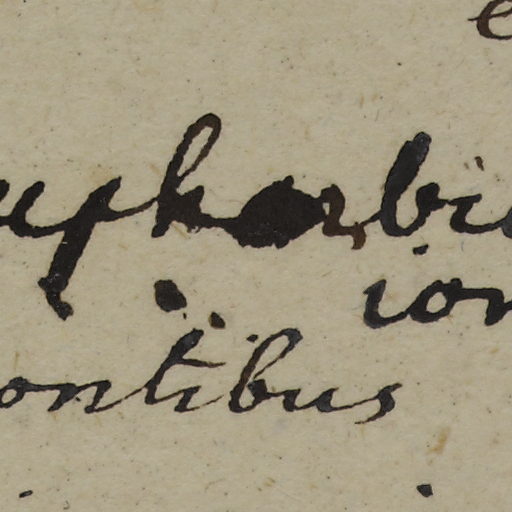 uphorbi
ion
ontibus